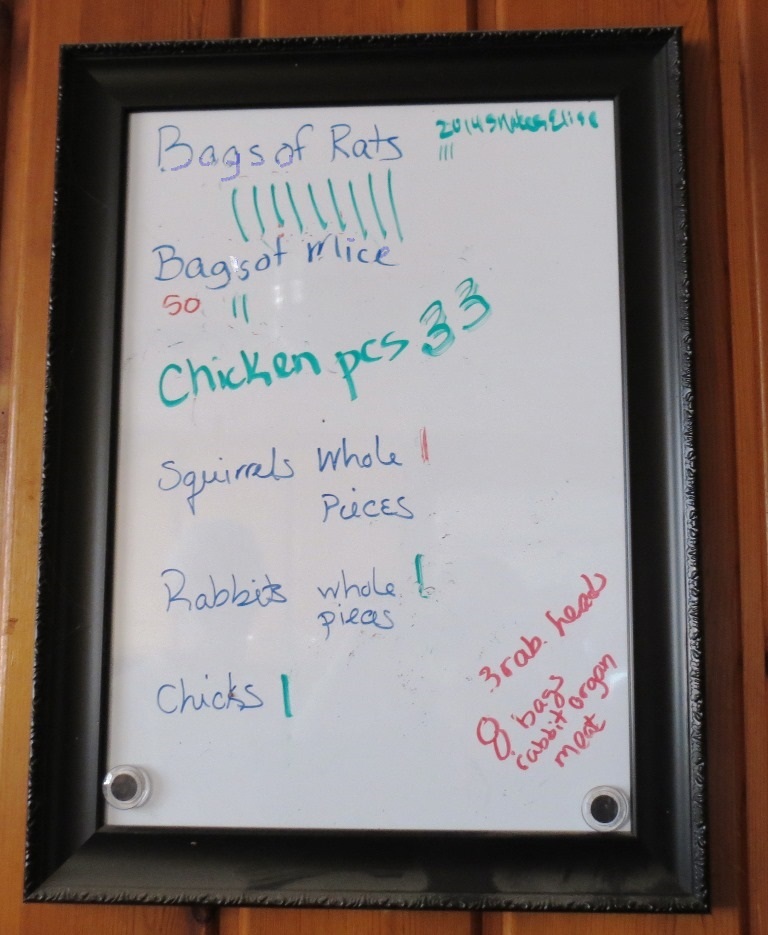 Bags of Rats
2014
|||
||||||||||
Bags of Mice
50 ||
Chicken pcs 33
Squirrels Whole |
Pieces
Rabbits whole |
pieces
Chicks |
3 rab. heads
8 bags
rabbit organ
meat